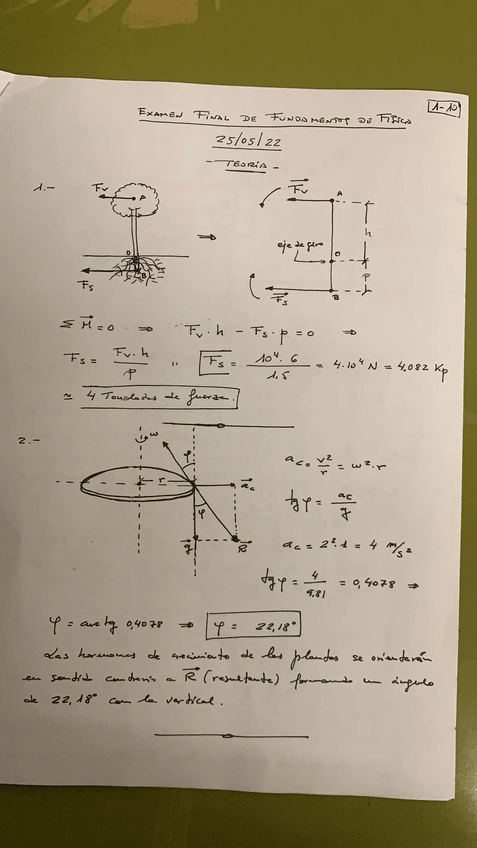 1-10
EXAMEN FINAL DE FUNDAMENTOS DE FÍSICA
25/05/22
- TEORÍA -
1.-
Fv A
O
B
Fs
⇒
Fv A
eje de giro O
h
P
Fs B
Σ M = 0 ⇒ Fv · h - Fs · p = 0 ⇒
Fs = Fv · h / p ,, Fs = 10⁴ · 6 / 1,5 = 4·10⁴ N = 4,082 Kp
≃ 4 Toneladas de fuerza.
2.-
ω φ
r ac
φ
g R
ac = v²/r = ω² · r
tg φ = ac/g
ac = 2² · 1 = 4 m/s²
tg φ = 4/9,81 = 0,4078 ⇒
φ = arctg 0,4078 ⇒ φ = 22,18°
Las hormonas de crecimiento de las plantas se orientarán
en sentido contrario a R (resultante) formando un ángulo
de 22,18° con la vertical.